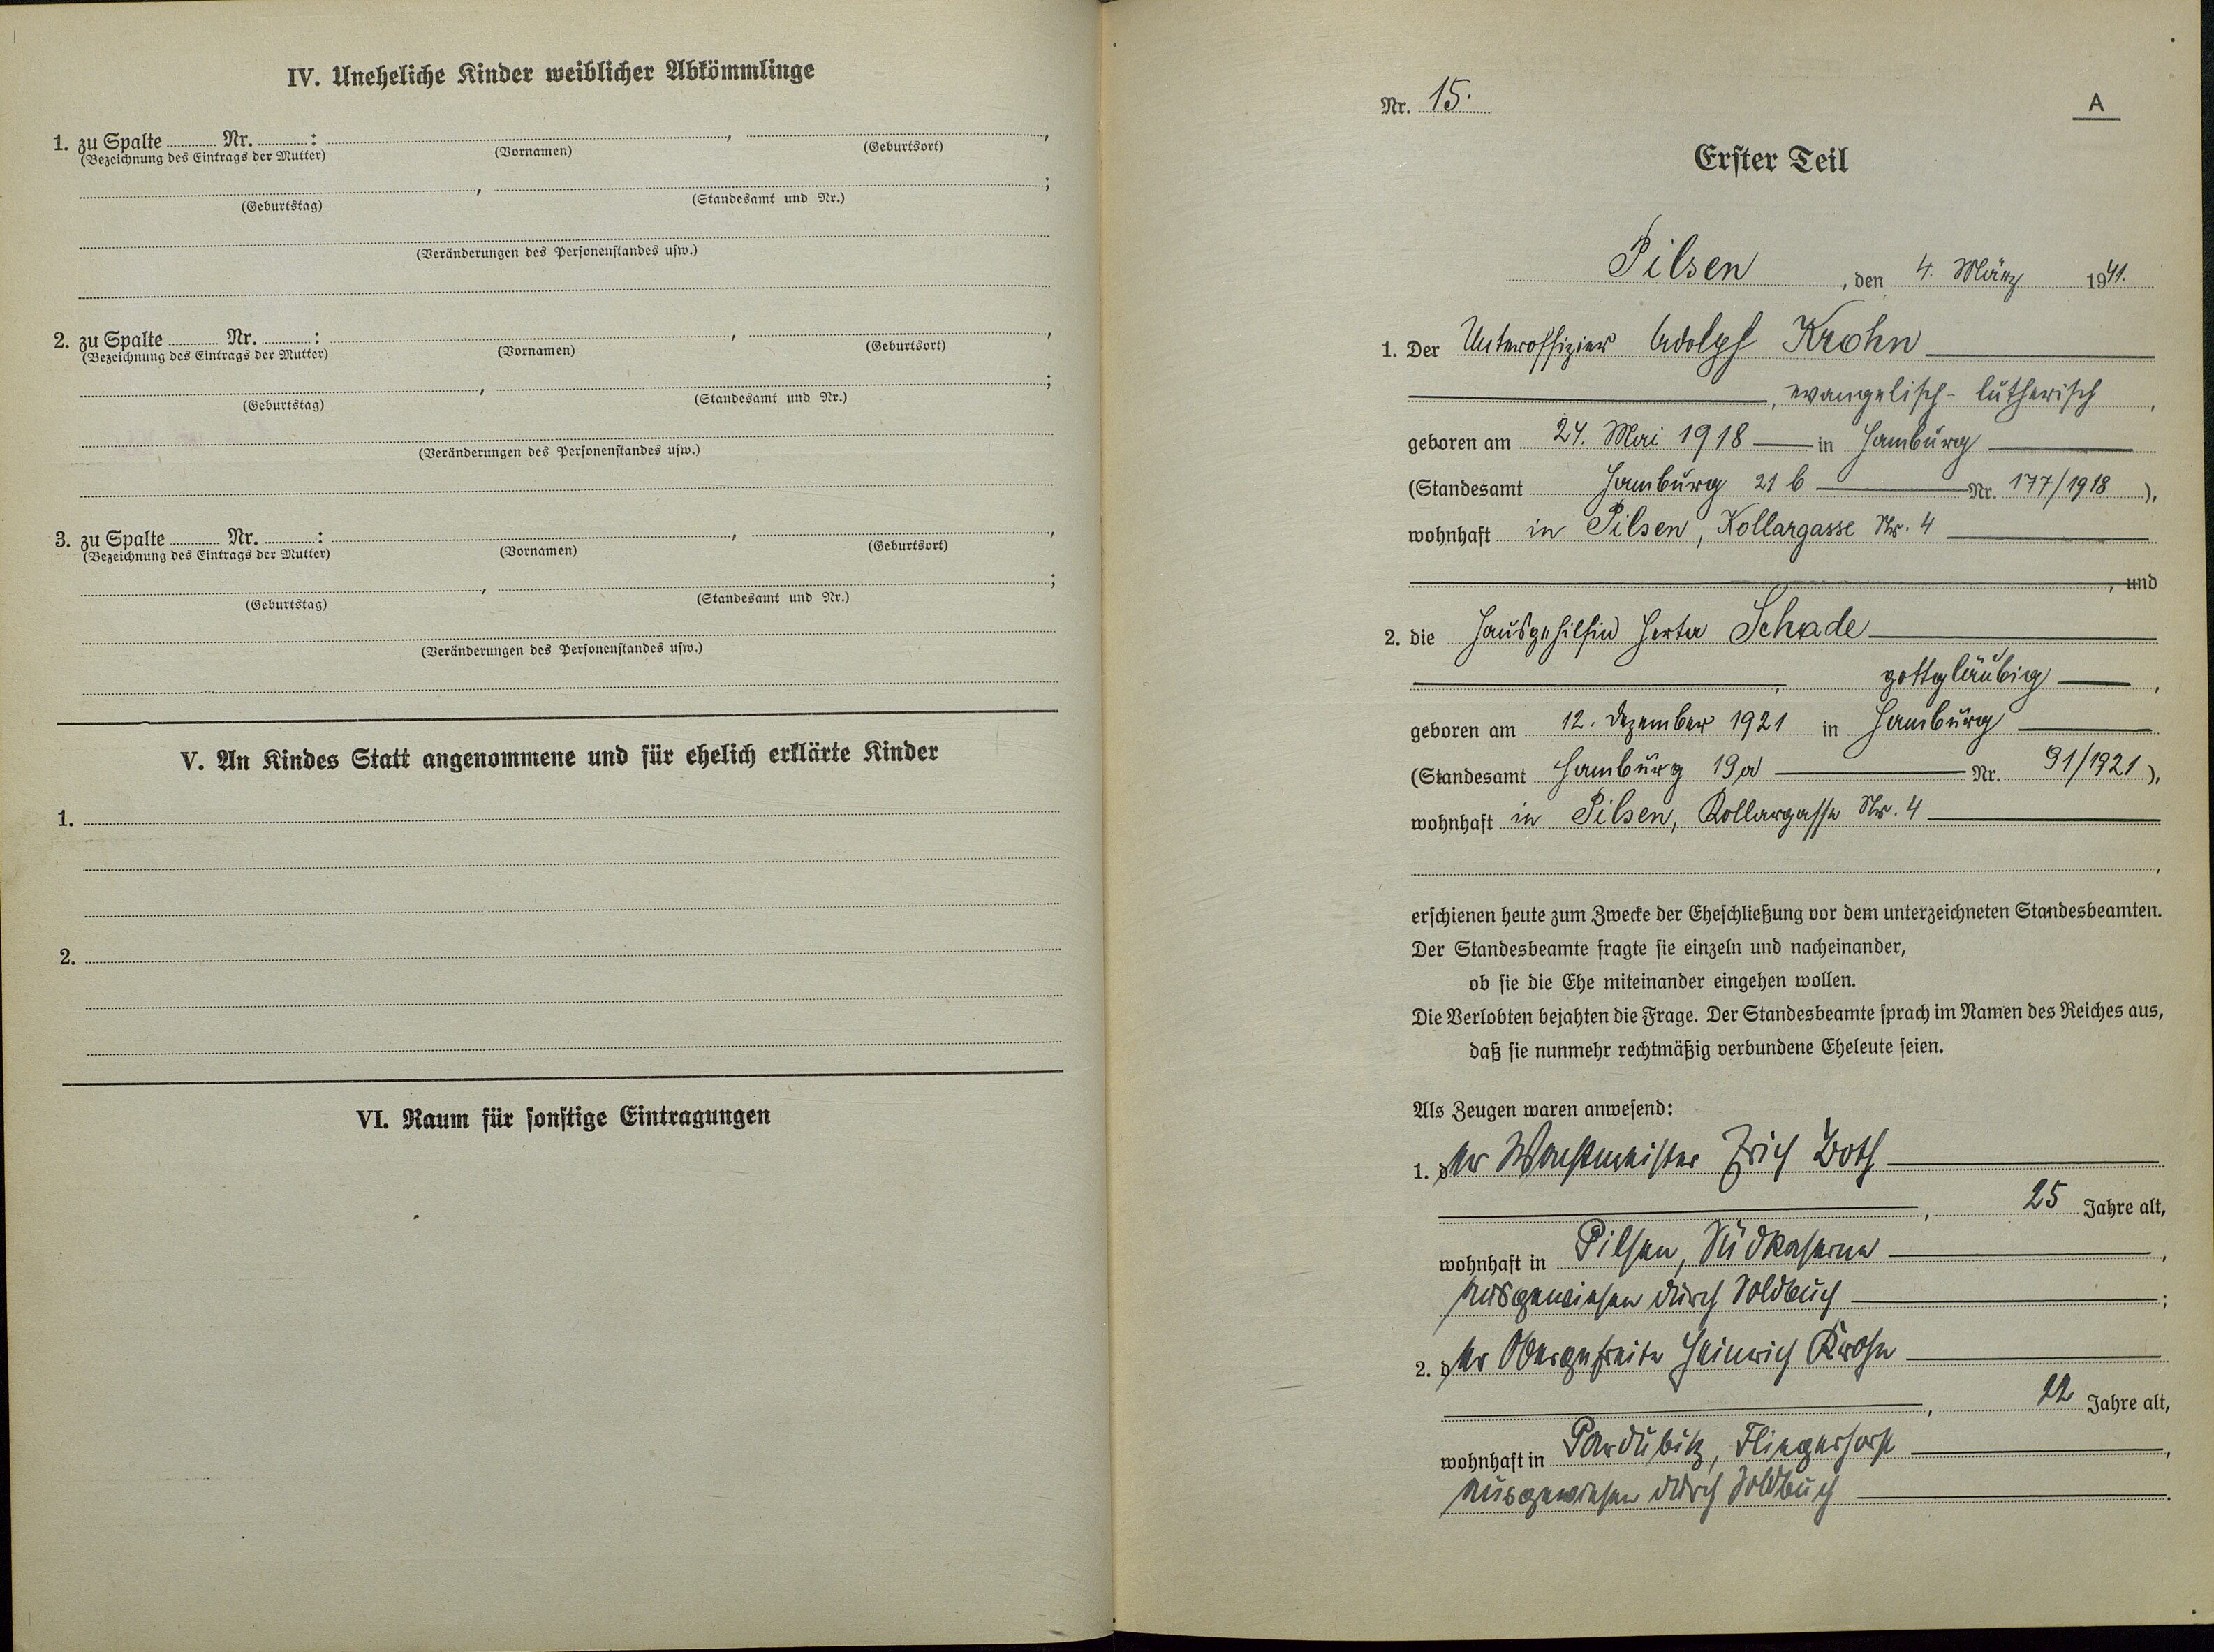 IV. Uneheliche Kinder weiblicher Abkömmlinge
1. zu Spalte Nr. : , ,
(Bezeichnung des Eintrags der Mutter) (Vornamen) (Geburtsort)
, ;
(Geburtstag) (Standesamt und Nr.)
(Veränderungen des Personenstandes usw.)
2. zu Spalte Nr. : , ,
(Bezeichnung des Eintrags der Mutter) (Vornamen) (Geburtsort)
, ;
(Geburtstag) (Standesamt und Nr.)
(Veränderungen des Personenstandes usw.)
3. zu Spalte Nr. : , ,
(Bezeichnung des Eintrags der Mutter) (Vornamen) (Geburtsort)
, ;
(Geburtstag) (Standesamt und Nr.)
(Veränderungen des Personenstandes usw.)
V. An Kindes Statt angenommene und für ehelich erklärte Kinder
1.
2.
VI. Raum für sonstige Eintragungen
Nr. 15. A
Erster Teil
Pilsen, den 4. März 1941.
1. Der Unteroffizier Adolf Krohn
, evangelisch-lutherisch,
geboren am 24. Mai 1918 in Hamburg
(Standesamt Hamburg 21 b Nr. 177/1918),
wohnhaft in Pilsen, Kollargasse Nr. 4
, und
2. die Hausgehilfin Herta Schade
, gottgläubig,
geboren am 12. Dezember 1921 in Hamburg
(Standesamt Hamburg 19a Nr. 91/1921),
wohnhaft in Pilsen, Kollargasse Nr. 4
,
erschienen heute zum Zwecke der Eheschließung vor dem unterzeichneten Standesbeamten.
Der Standesbeamte fragte sie einzeln und nacheinander,
ob sie die Ehe miteinander eingehen wollen.
Die Verlobten bejahten die Frage. Der Standesbeamte sprach im Namen des Reiches aus,
daß sie nunmehr rechtmäßig verbundene Eheleute seien.
Als Zeugen waren anwesend:
1. der Wachtmeister Erich
, 25 Jahre alt,
wohnhaft in Pilsen, Südkaserne,
ausgewiesen durch Soldbuch;
2. der Obergefreite Heinrich Krohn
, 22 Jahre alt,
wohnhaft in Pardubitz, Fliegerhorst,
ausgewiesen durch Soldbuch.